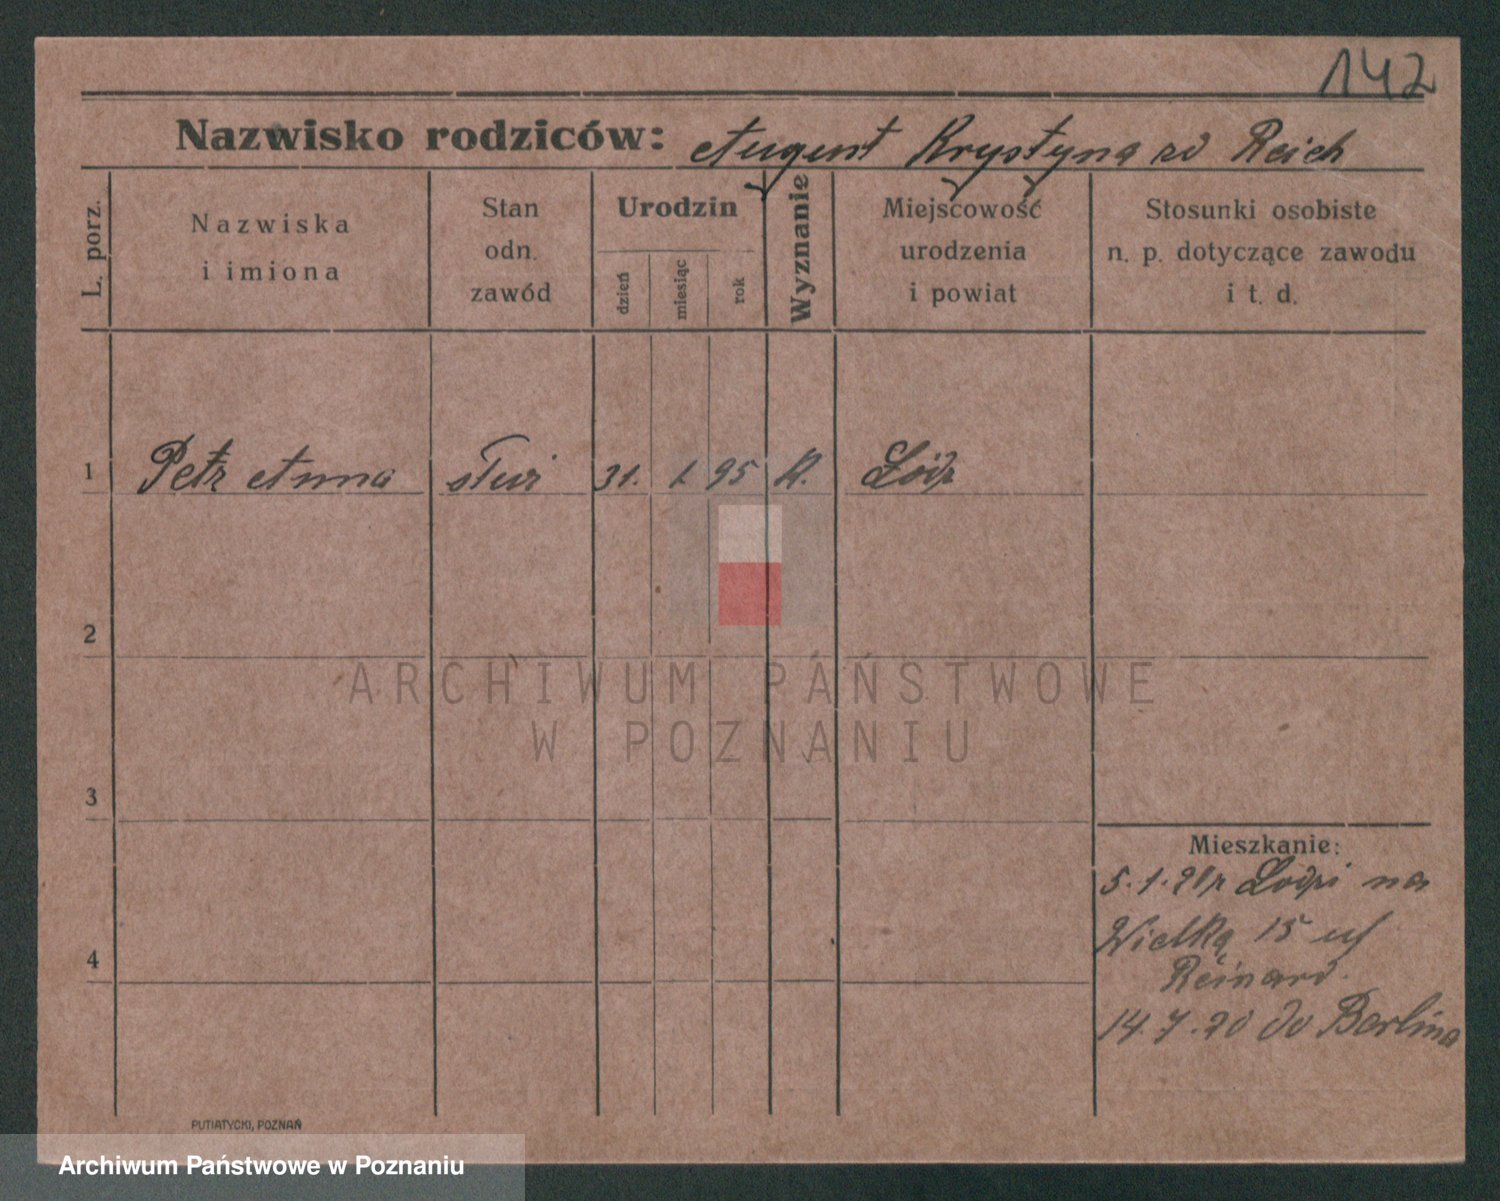 142
Nazwisko rodziców: August Krystyna zd Reich
L. porz.
Nazwiska
i imiona
Stan
odn.
zawód
Urodzin
dzień
miesiąc
rok
Wyznanie
Miejscowość
urodzenia
i powiat
Stosunki osobiste
n. p. dotyczące zawodu
i t. d.
1 Petz Anna 31. 1. 95 K. Łódź
2
ARCHIWUM PAŃSTWOWE
W POZNANIU
3
Mieszkanie:
5.1.20 z Łodzi na
Wielką 15 uf
4
Reinard.
14.7.20 do Berlina
PUTIATYCKI, POZNAŃ
Archiwum Państwowe w Poznaniu